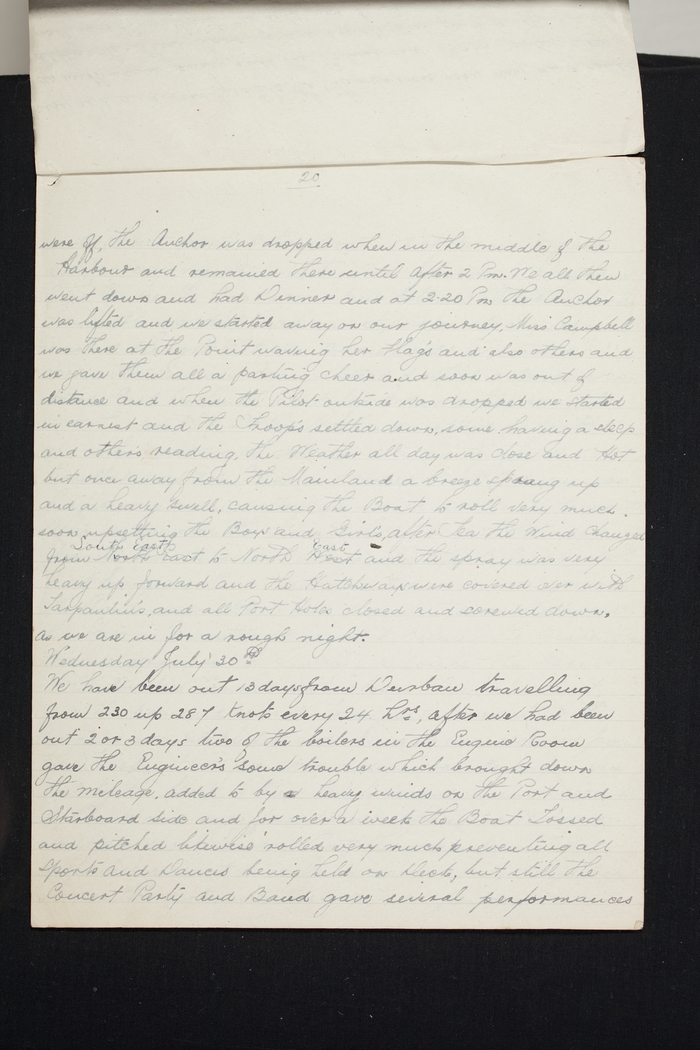 20
were off, the Anchor was dropped when in the middle of the
Harbour and remained there until after 2 Pm. We all then
went down and had Dinner and at 2.20 Pm the Anchor
was lifted and we started away on our journey, Miss Campbell
was there at the Point waving her flags and also others and
we gave them all a parting cheer and soon was out of
distance and when the Pilot outside was dropped we started
in earnest and the Troops settled down, some having a sleep
and others reading, the Weather all day was close and Hot
but once away from the Mainland a breeze sprang up
and a heavy swell, causing the Boat to roll very much.
soon upsetting the Boys and Girls, after Tea the Wind changed
South East East
from North East to North West and the spray was very
heavy up forward and the Hatchways were covered over with
Tarpaulins, and all Port Holes closed and screwed down,
as we are in for a rough night.
Wednesday July 30th
We have been out 13 days from Durban travelling
from 230 up 287 Knots every 24 hrs, after we had been
out 2 or 3 days two of the boilers in the Engine Room
gave the Engineers some trouble which brought down
the mileage, added to by a heavy winds on the Port and
Starboard side and for over a week the Boat Tossed
and pitched likewise rolled very much preventing all
Sports and Dances being held on Deck, but still the
Concert Party and Band gave several performances